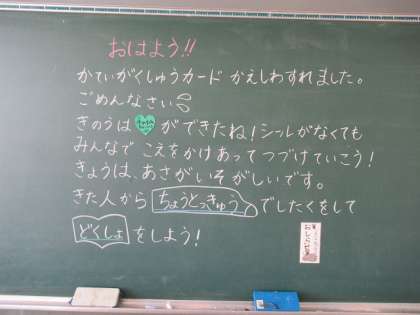 おはよう!!
かていがくしゅうカード かえしわすれました。
ごめんなさい
きのうは ができたね！シールがなくても
みんなで こえをかけあってつづけていこう！
きょうは、あさがいそがしいです。
きた人から ちょうとっきゅう でしたくをして
どくしょ をしよう！